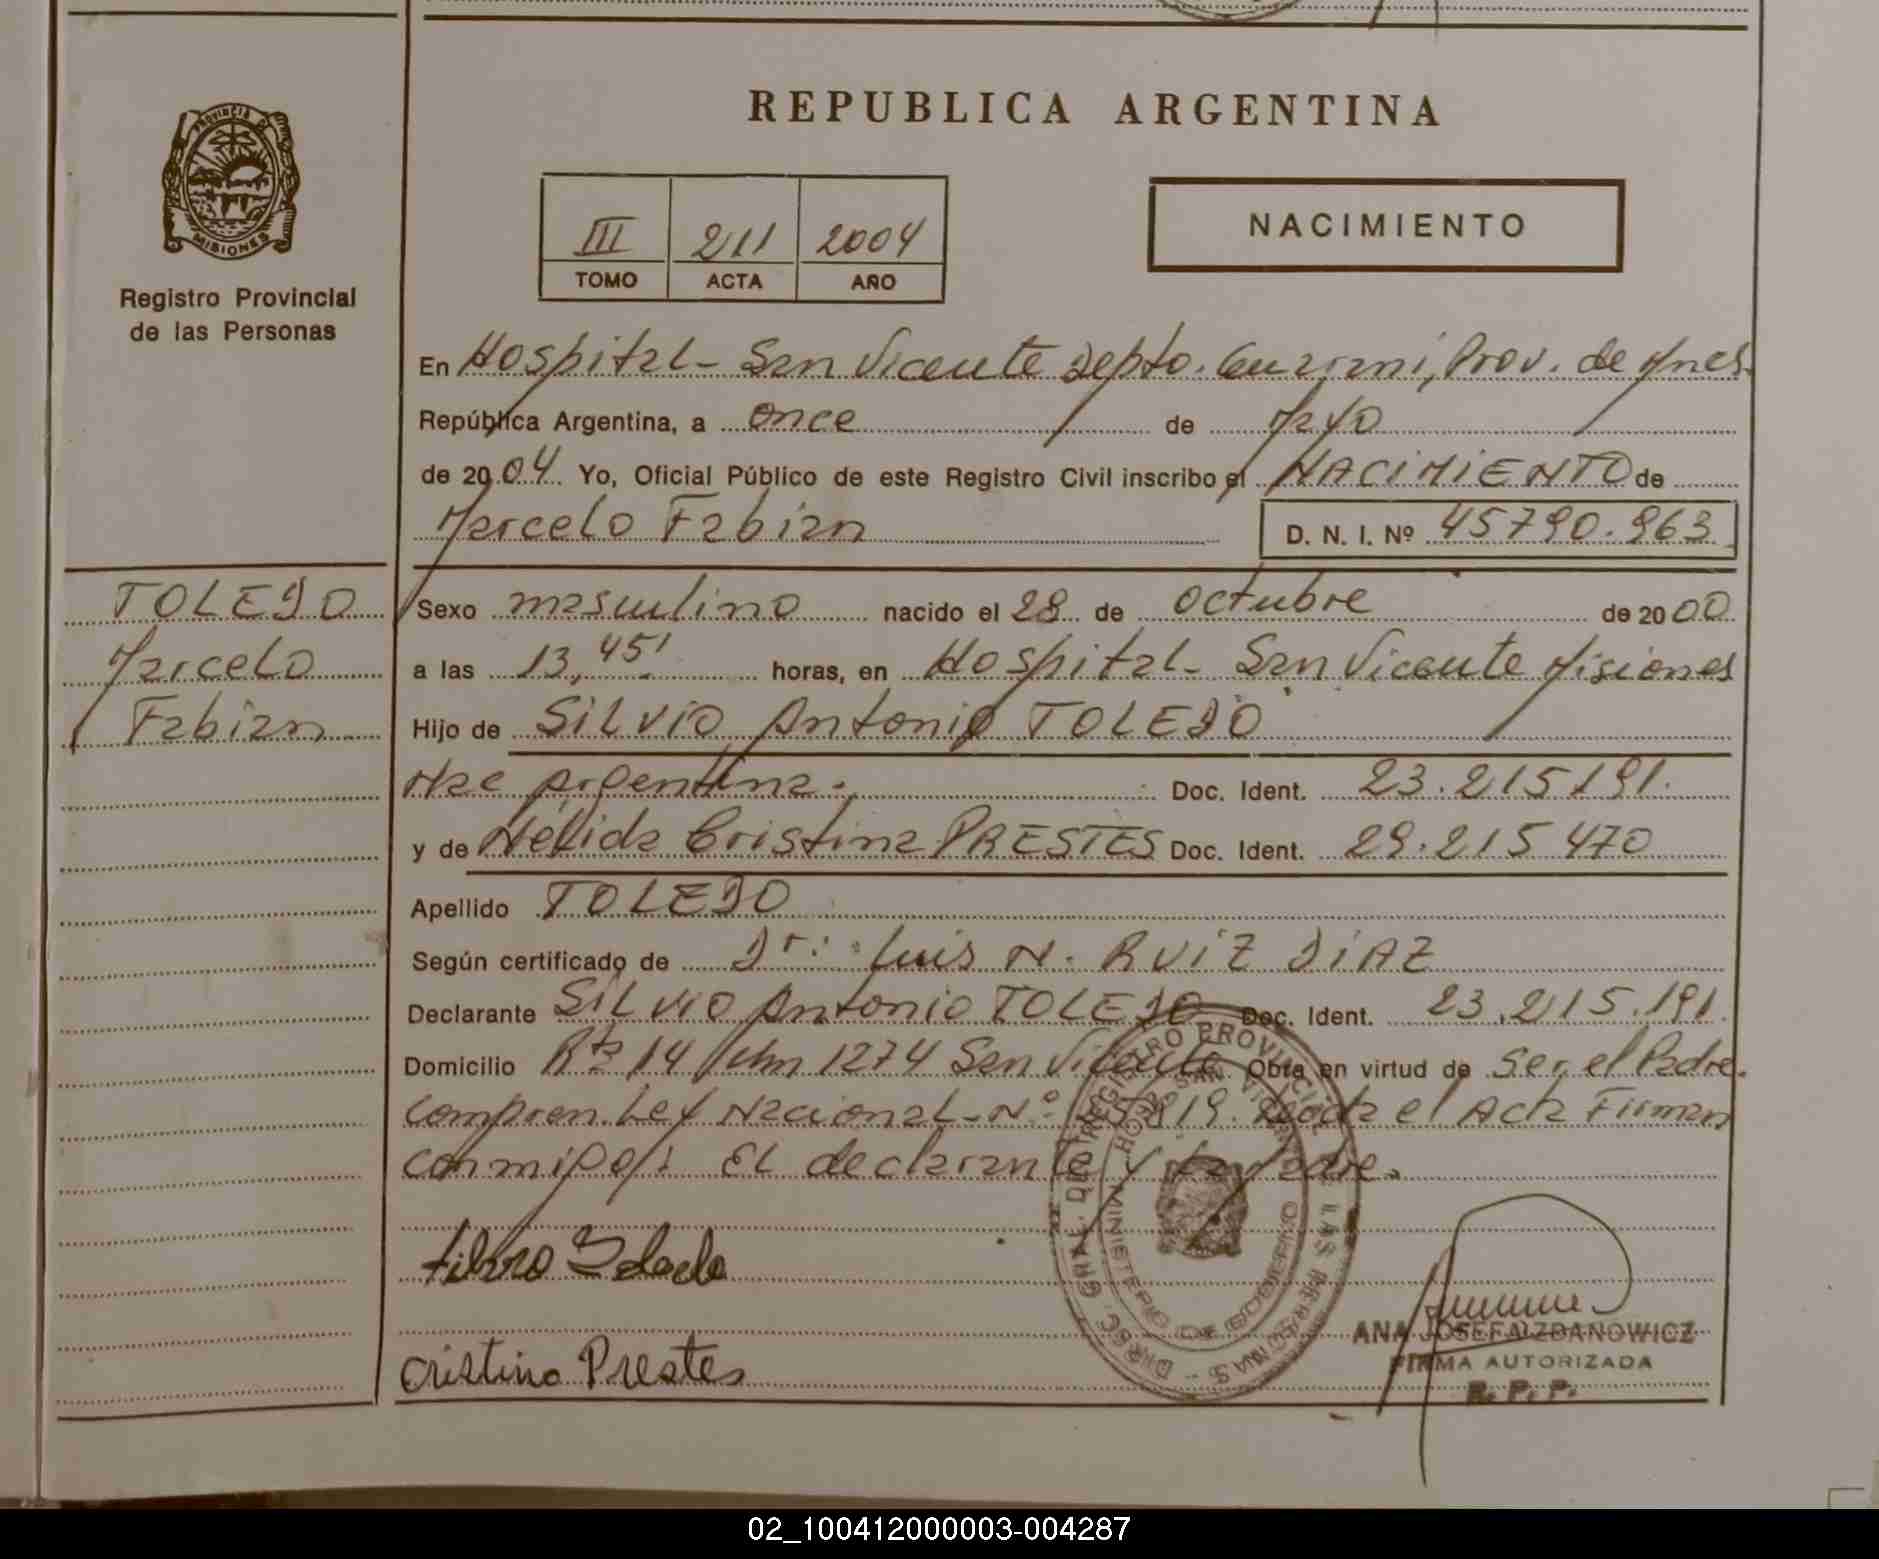 REPUBLICA ARGENTINA
PROVINCIA DE
MISIONES
Registro Provincial
de las Personas
III 211 2004
TOMO ACTA AÑO
NACIMIENTO
En Hospital - San Vicente Depto. Guarani, Prov. de Mnes.
República Argentina, a once de Mayo
de 2004. Yo, Oficial Público de este Registro Civil inscribo el NACIMIENTO de
Marcelo Fabian D. N. I. Nº 45790.963
TOLEDO
Marcelo
Fabian
Sexo masculino nacido el 28 de octubre de 2000
a las 13,45' horas, en Hospital - San Vicente Misiones
Hijo de Silvio Antonio TOLEDO
Nac Argentina. Doc. Ident. 23.215191.
y de Nélida Cristina PRESTES Doc. Ident. 29.215470
Apellido TOLEDO
Según certificado de Dr: Luis N. RUIZ DIAZ
Declarante Silvio Antonio TOLEDO Doc. Ident. 23.215.191.
Domicilio Rta 14 Km 1274 San Vicente Obra en virtud de Ser el Padre.
Compren. Ley Nacional - Nº el Acta Firman
conmigo: El declarante y La Madre.
Cristina Prestes
DIREC. GRAL. DEL REGISTRO PROVINCIAL DE LAS PERSONAS -
MINISTERIO DE GOBIERNO
SAN VICENTE
ANA JOSEFA IZDANOWICZ
FIRMA AUTORIZADA
R. P. P.
02_100412000003-004287